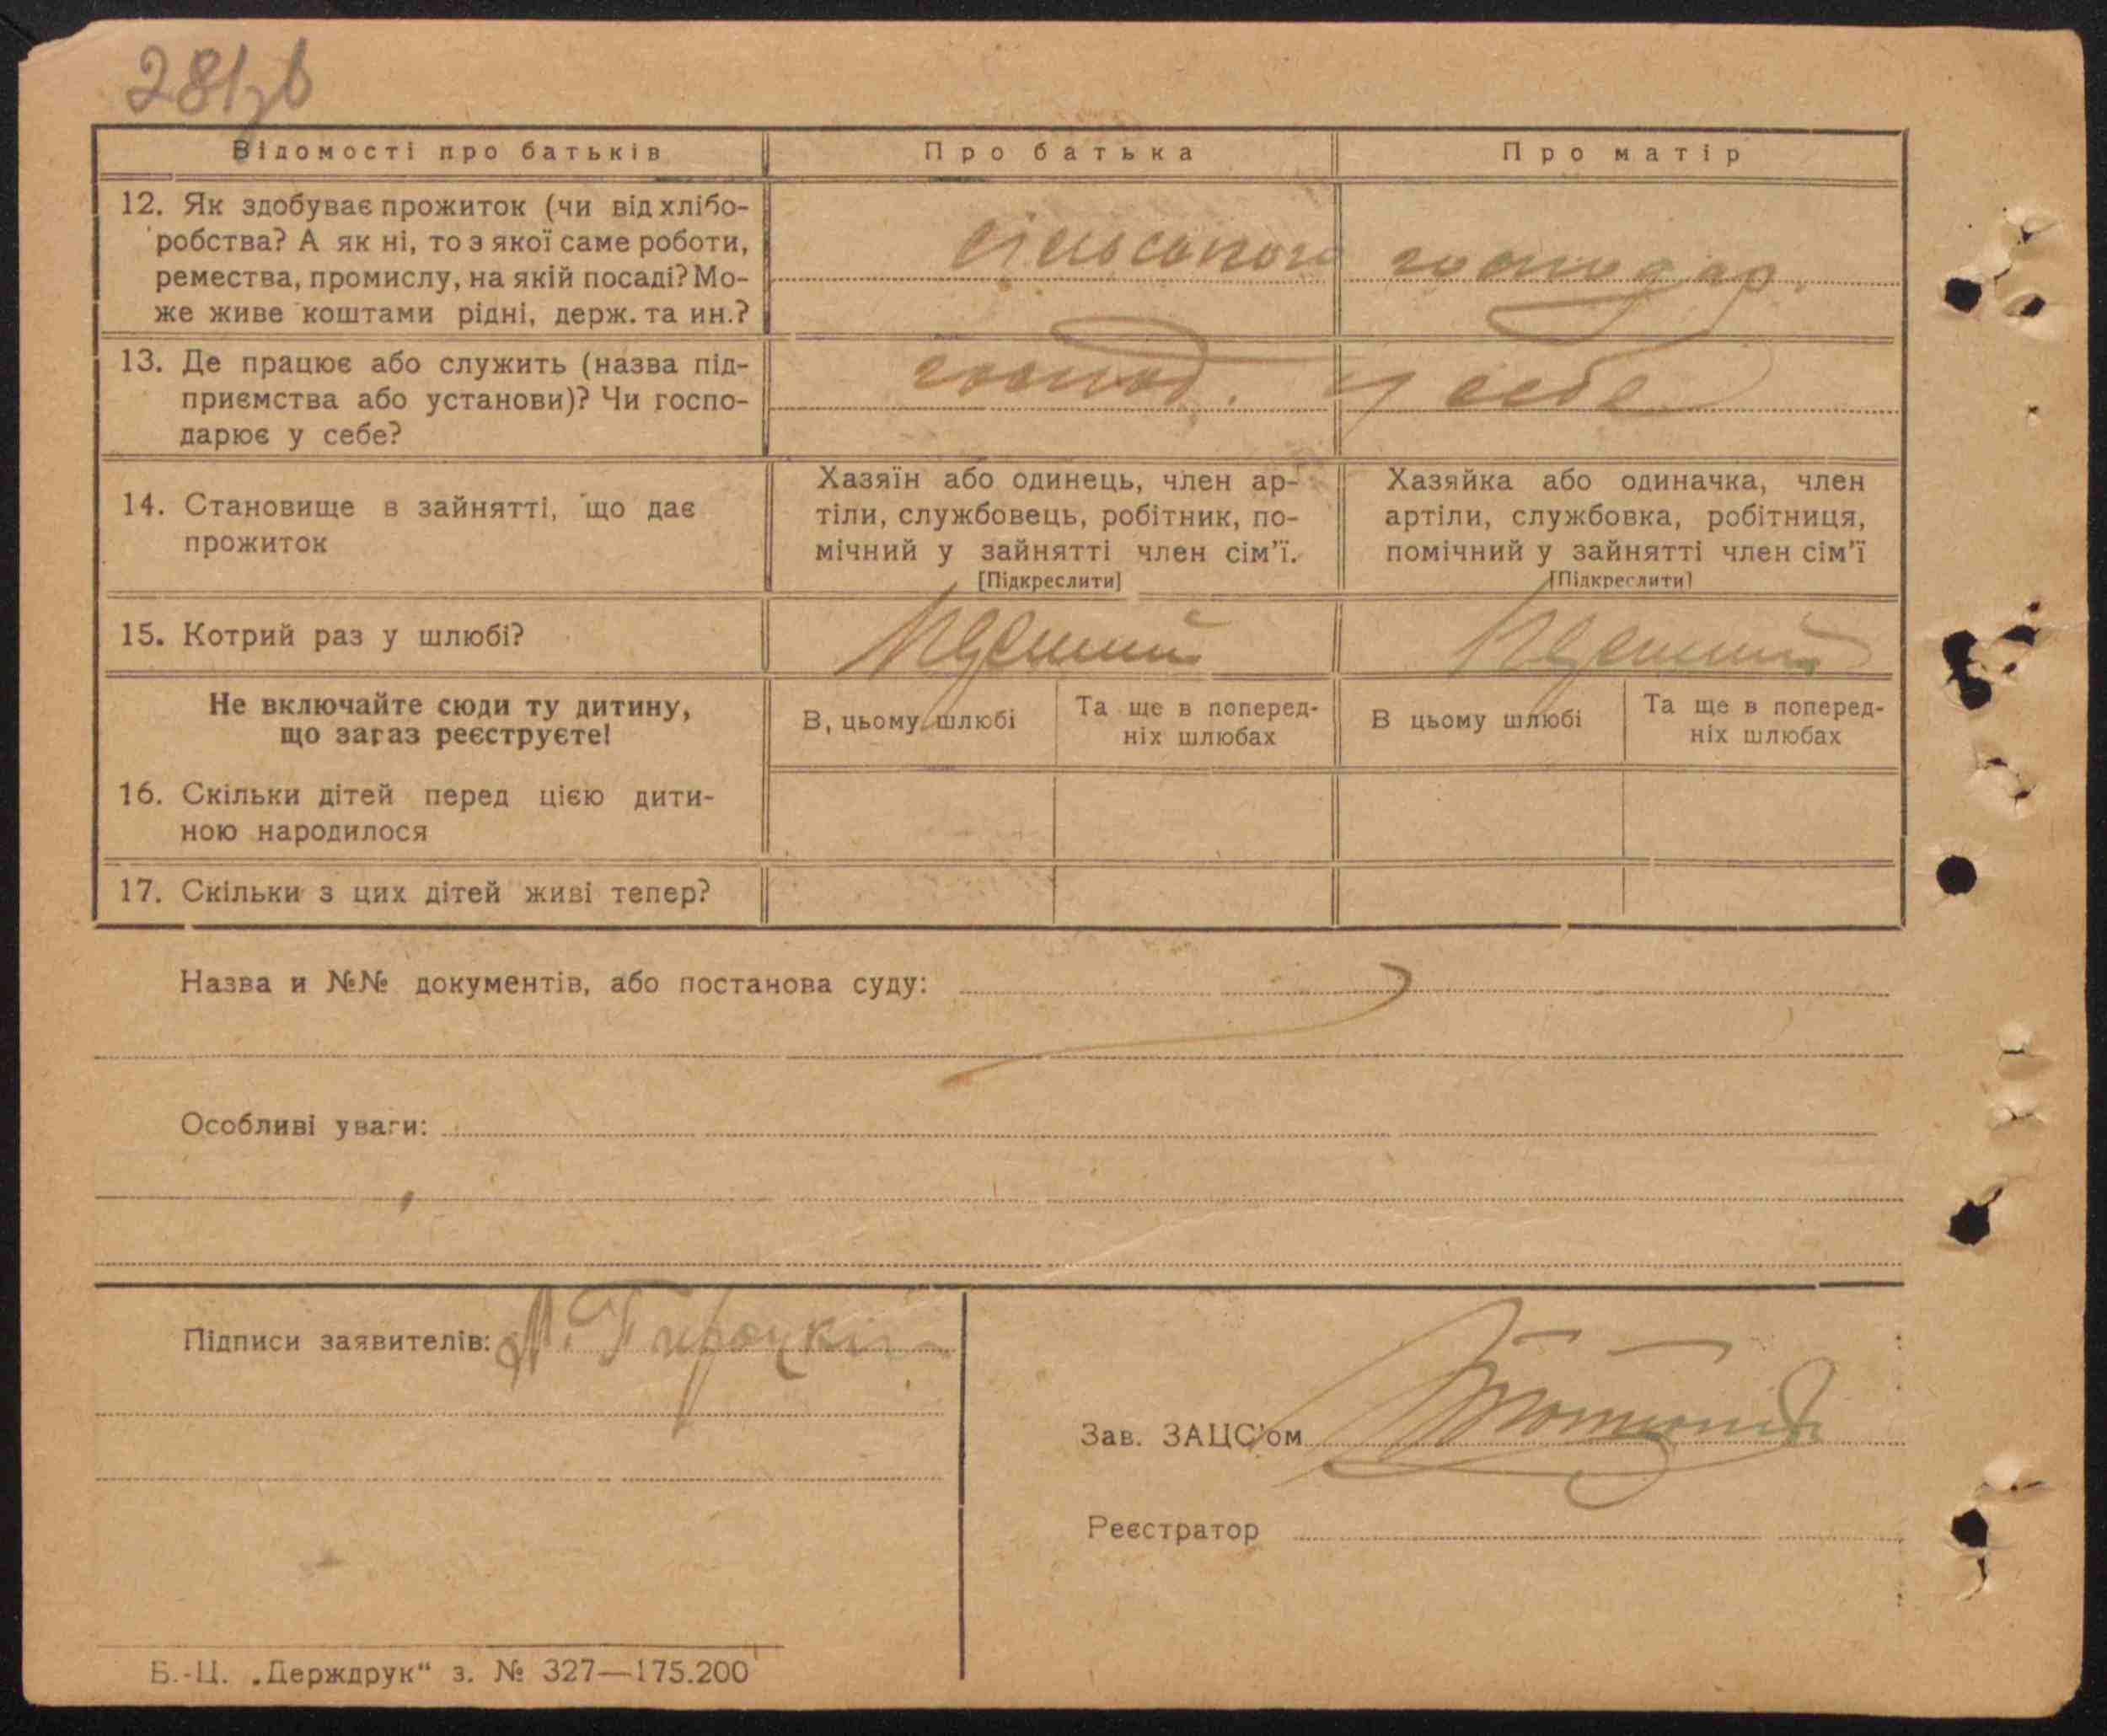 281зв
Відомості про батьків
Про батька
Про матір
12. Як здобуває прожиток (чи від хлібо-
робства? А як ні, то з якої саме роботи,
ремества, промислу, на якій посаді? Мо-
же живе коштами рідні, держ. та ин.?
сільського господар.
13. Де працює або служить (назва під-
приємства або установи)? Чи госпо-
дарює у себе?
господ. у себе
14. Становище в зайнятті, що дає
прожиток
Хазяїн або одинець, член ар-
тіли, службовець, робітник, по-
мічний у зайнятті член сім'ї.
[Підкреслити]
Хазяйка або одиначка, член
артіли, службовка, робітниця,
помічний у зайнятті член сім'ї
[Підкреслити]
15. Котрий раз у шлюбі?
Перший
Перший
Не включайте сюди ту дитину,
що зараз реєструєте!
В, цьому шлюбі
Та ще в поперед-
ніх шлюбах
В цьому шлюбі
Та ще в поперед-
ніх шлюбах
16. Скільки дітей перед цією дити-
ною народилося
17. Скільки з цих дітей живі тепер?
Назва и №№ документів, або постанова суду:
Особливі уваги:
Підписи заявителів:
Зав. ЗАЦС'ом
Реєстратор
Б.-Ц. „Держдрук“ з. № 327—175.200